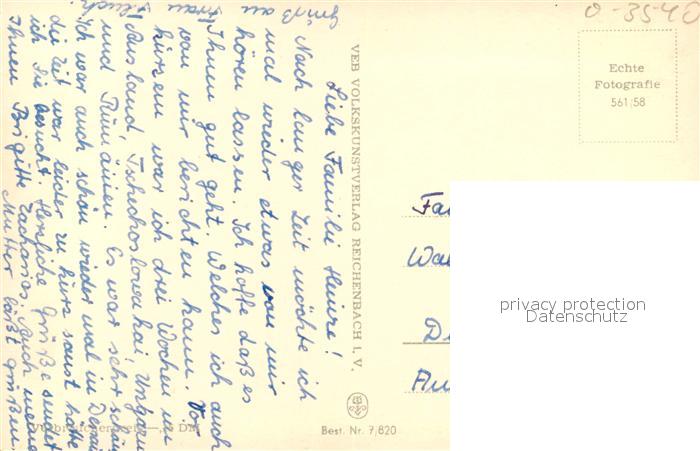 Liebe Familie Heinze!
Nach langer Zeit möchte ich
mal wieder etwas von mir
hören lassen. Ich hoffe daß es
Ihnen gut geht. Welches ich auch
von mir berichten kann. Vor
kurzem war ich drei Wochen im
Ausland, Tschechoslowakai, Ungarn
und Rumänien. Es war sehr schön
Ich war auch schon wieder mal in
die Zeit war leider zu kurz sonst hätte
ich Sie besucht. Herzliche Grüße sendet
Ihnen Brigitte Zacharias. Auch meine
Mutter läßt grüßen
Gruß an
Frau
VEB VOLKSKUNSTVERLAG REICHENBACH I. V.
0-3540
Echte
Fotografie
561/58
Fa
Wa
D
Au
privacy protection
Datenschutz
Best. Nr. 7/820